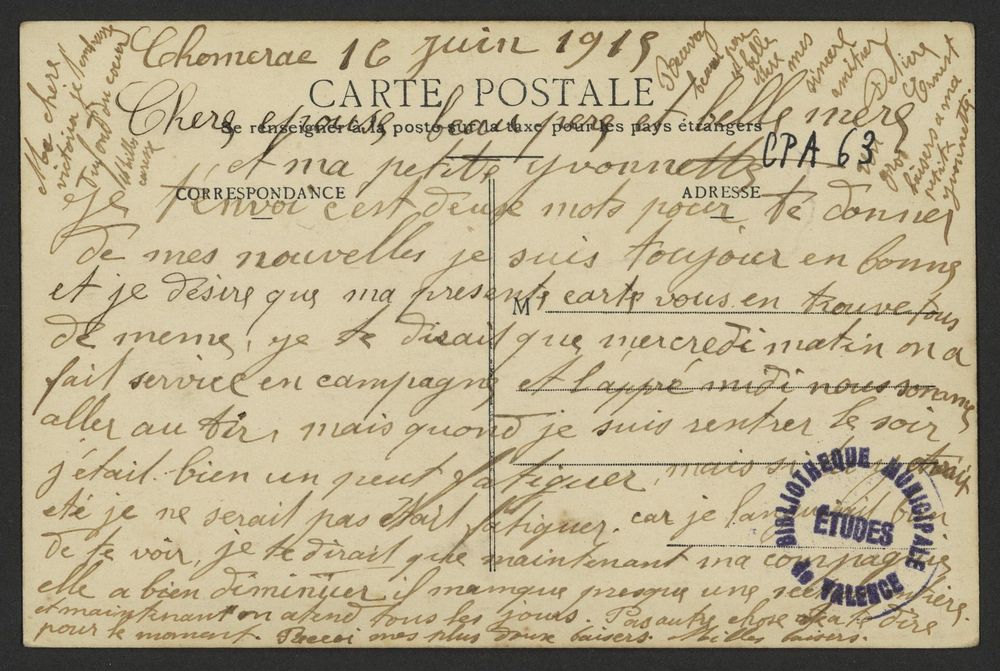 Chomerac 16 juin 1915
CARTE POSTALE
Chere epouse beau pere et belle mere
Se renseigner à la poste sur la taxe pour les pays étrangers
et ma petite yvonnette
CPA 63
CORRESPONDANCE
ADRESSE
Je t'envoi c'est deux mots pour te donner
de mes nouvelles je suis toujour en bonne
et je désire que ma presente carte vous en trouve tous
M
de meme, je te disait que mercredi matin on a
fait service en campagne et l'apré midi nous somme
aller au tir, mais quand je suis rentrer le soir
j'était bien un peut fatiguer, mais si
eté je ne serait pas était fatiguer. car je bien
de te voir, je te dirait que maintenant ma compagnie
elle a bien diminuer il manque presque une
et maintenant on atend tous les jours. Pas autre chose a te dire
pour le moment. Recoi mes plus doux baisers. Milles baisers.
Ma chere
victoria je t'embrasse
du fond du coeur
Milles
beau pere
et belle
mere mes
sincere
amitier
Deux
gros
baisers a ma
petite
yvonnette
BIBLIOTHEQUE MUNICIPALE
ÉTUDES
de VALENCE